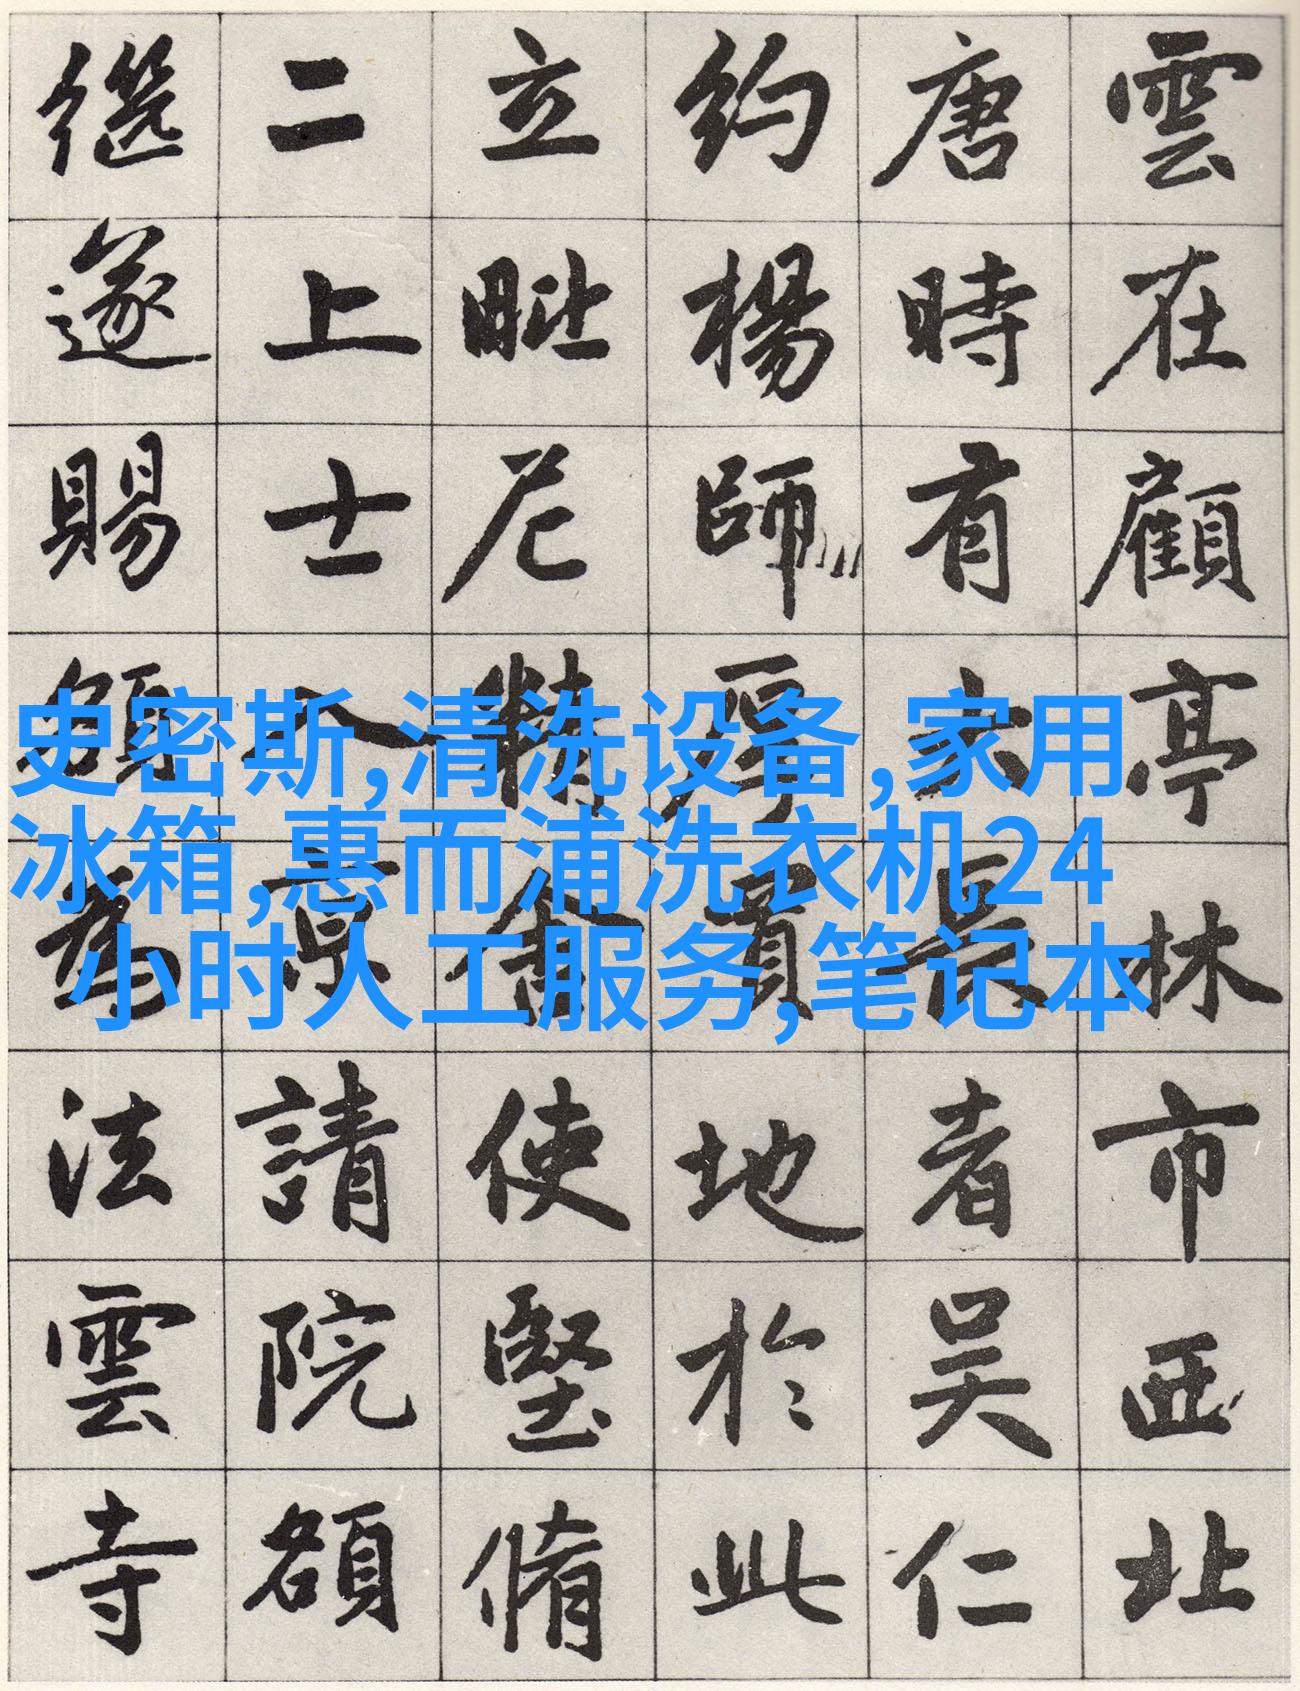 雲在顧亭林市西北
唐時有大長者吳仁
約楊師厚地於此
立毗尼精舍使堅脩
二上士入京請院額
繼遂賜額為法雲寺
史密斯,清洗设备,家用
冰箱,惠而浦洗衣机24
小时人工服务,笔记本